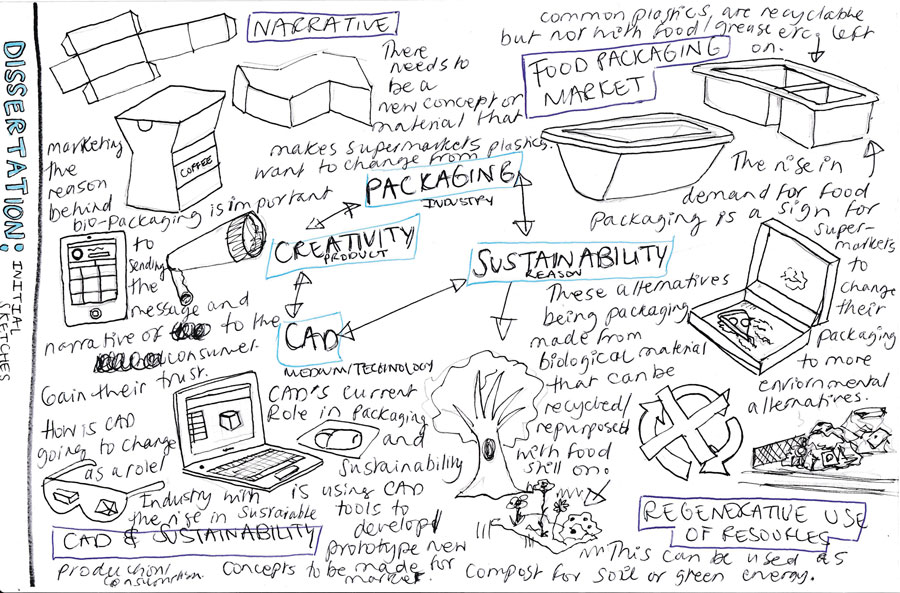 DISSERTATION:
INITIAL
SKETCHES
NARRATIVE
There
needs to
be a
new concept or
material that
makes supermarkets
want to change from plastics.
common plastics are recyclable
but not with food/grease etc. left
on.
FOOD PACKAGING
MARKET
COFFEE
marketing
the
reason
behind
bio-packaging is important
to
sending
the
message and
narrative of to the
consumer
Gain their trust.
PACKAGING
INDUSTRY
CREATIVITY
PRODUCT
SUSTAINABILITY
REASON
CAD
MEDIUM/TECHNOLOGY
The rise in
demand for food
packaging is a sign for
super-
markets
to
change
their
packaging
to more
enviornmental
alternatives.
These alternatives
being packaging
made from
biological material
that can be
recycled/
repurposed
with food
still on.
How is CAD
going to change
as a role
Industry with
the rise in Sustainable
production/
consumerism.
CAD'S current
Role in packaging
and
Sustainability
is using CAD
tools to
develop/
prototype new
concepts to be made for
market.
CAD & SUSTAINABILITY
REGENERATIVE USE
OF RESOURCES
This can be used as
compost for soil or green energy.